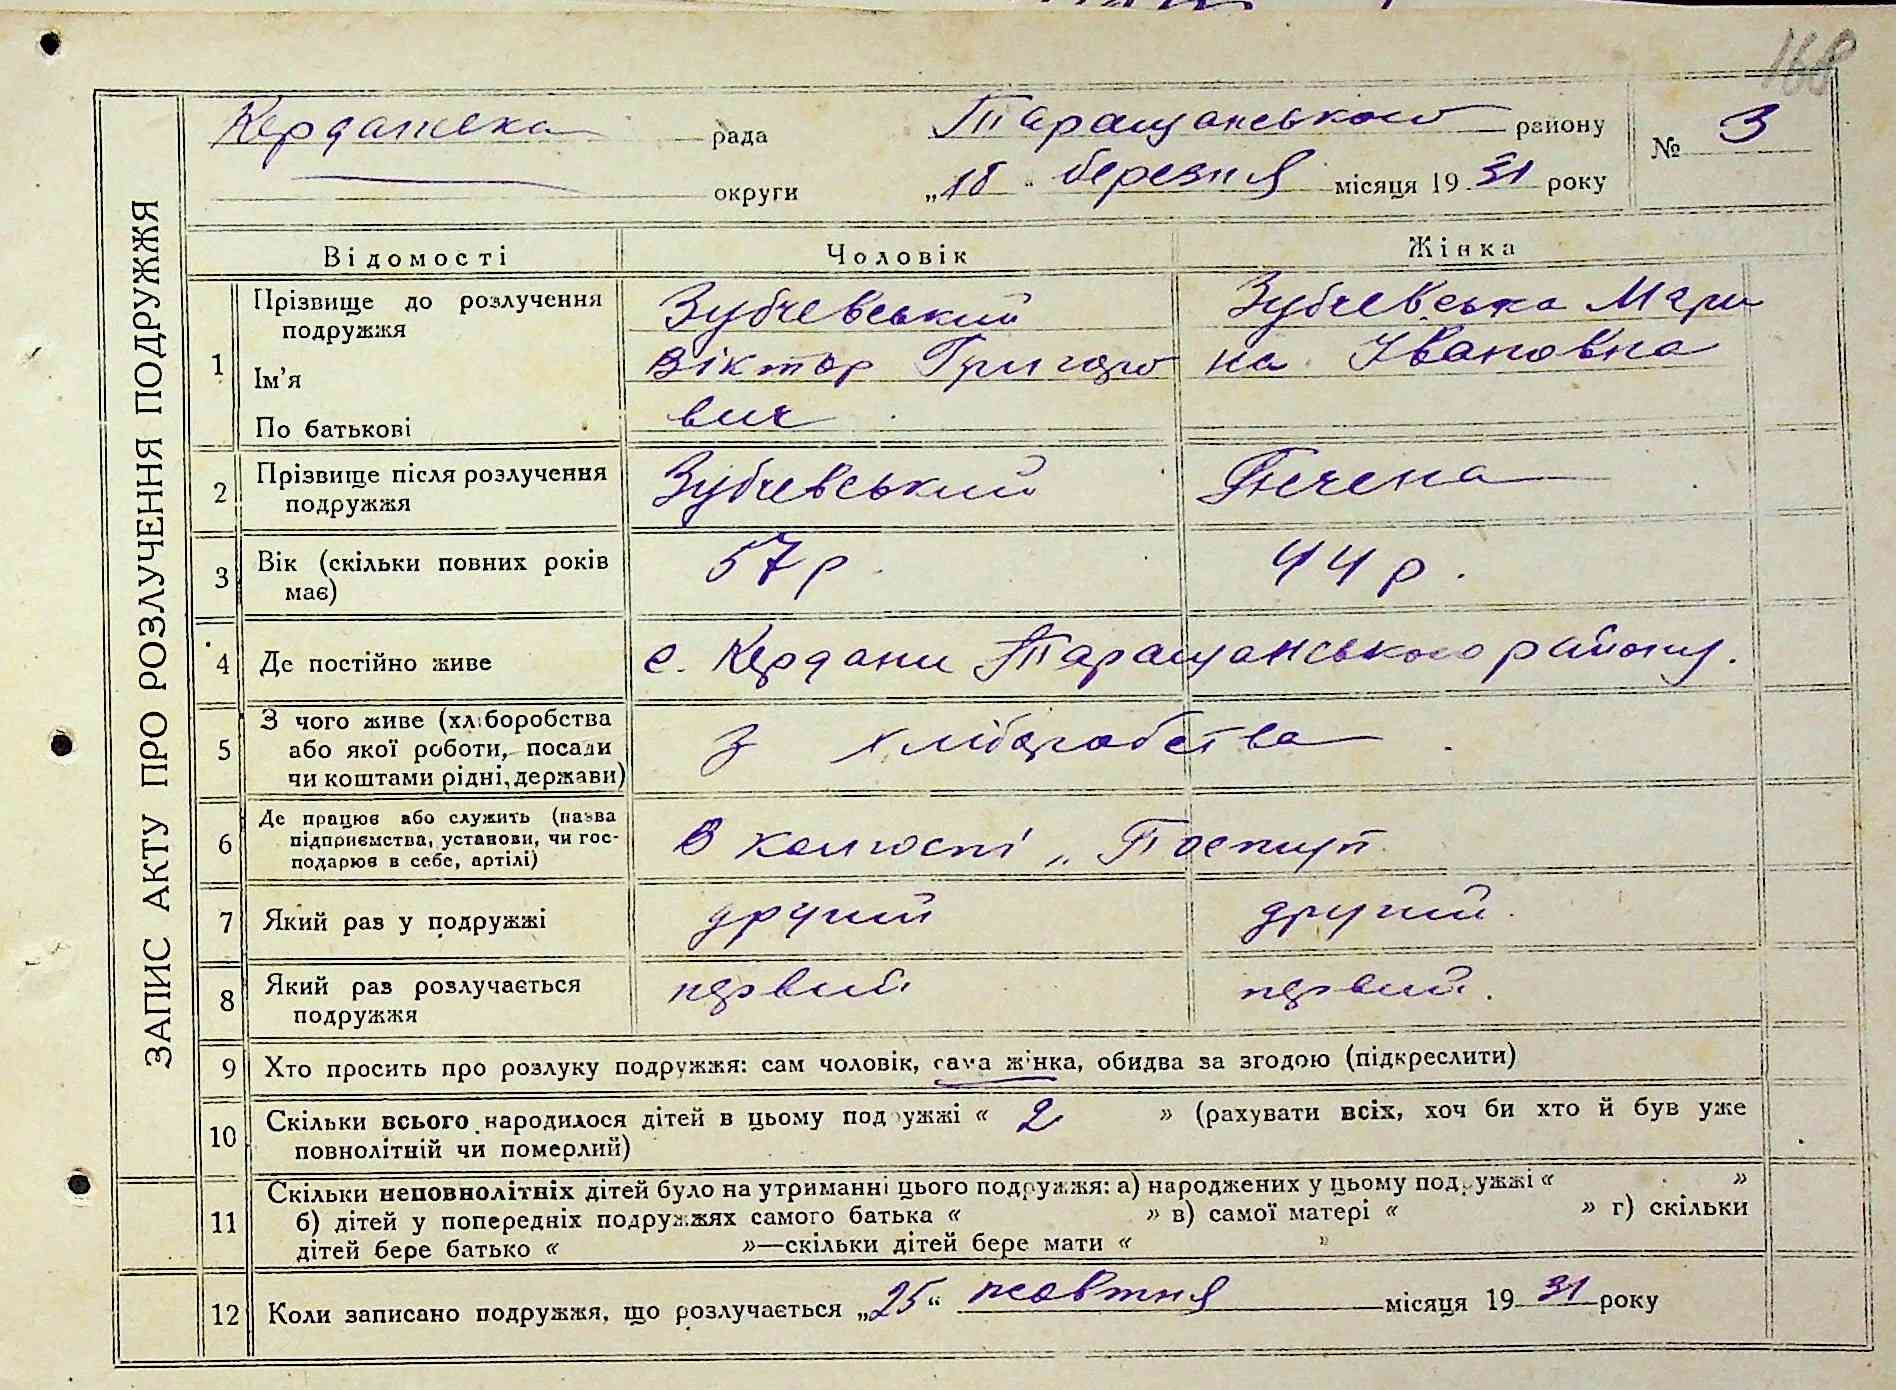 168
Керданська рада Таращанського району № 3
округи „18“ березня місяця 1931 року
ЗАПИС АКТУ ПРО РОЗЛУЧЕННЯ ПОДРУЖЖЯ
Відомості Чоловік Жінка
1 Прізвище до розлучення подружжя Зубчевський Зубчевська Мари
Ім'я Віктор Григоро на Івановна
По батькові вич
2 Прізвище після розлучення Зубчевський
подружжя
3 Вік (скільки повних років 57 р. 44 р.
має)
4 Де постійно живе с. Кердани Таращанського району.
5 З чого живе (хліборобства
або якої роботи, посади з хліборобства
чи коштами рідні, держави)
6 Де працює або служить (назва
підприємства, установи, чи гос- В колгоспі „
подарює в себе, артілі)
7 Який раз у подружжі другий другий.
8 Який раз розлучається первий первий.
подружжя
9 Хто просить про розлуку подружжя: сам чоловік, сама жінка, обидва за згодою (підкреслити)
10 Скільки всього народилося дітей в цьому подружжі « 2 » (рахувати всіх, хоч би хто й був уже
повнолітній чи померлий)
11 Скільки неповнолітніх дітей було на утриманні цього подружжя: а) народжених у цьому подружжі « »
б) дітей у попередніх подружжях самого батька « » в) самої матері « » г) скільки
дітей бере батько « »—скільки дітей бере мати « »
12 Коли записано подружжя, що розлучається „25“ жовтня місяця 1931 року